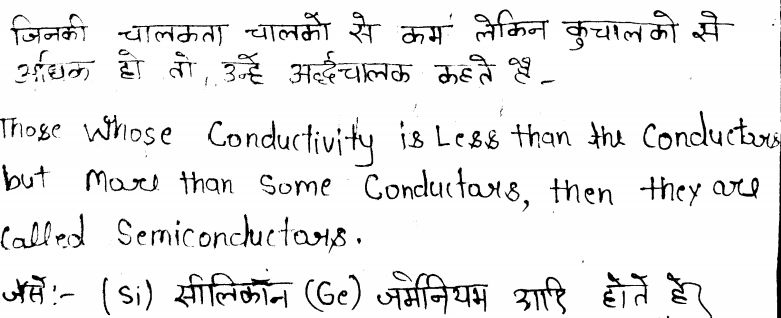 जिनकी चालकता चालकों से कम लेकिन कुचालको से
अधिक हो तो, उन्हें अर्द्धचालक कहते हैं -
Those Whose Conductivity is Less than the Conductors
but More than Some Conductors, then they are
Called Semiconductors.
जैसे:- (Si) सीलिकॉन (Ge) जर्मेनियम आदि होते हैं